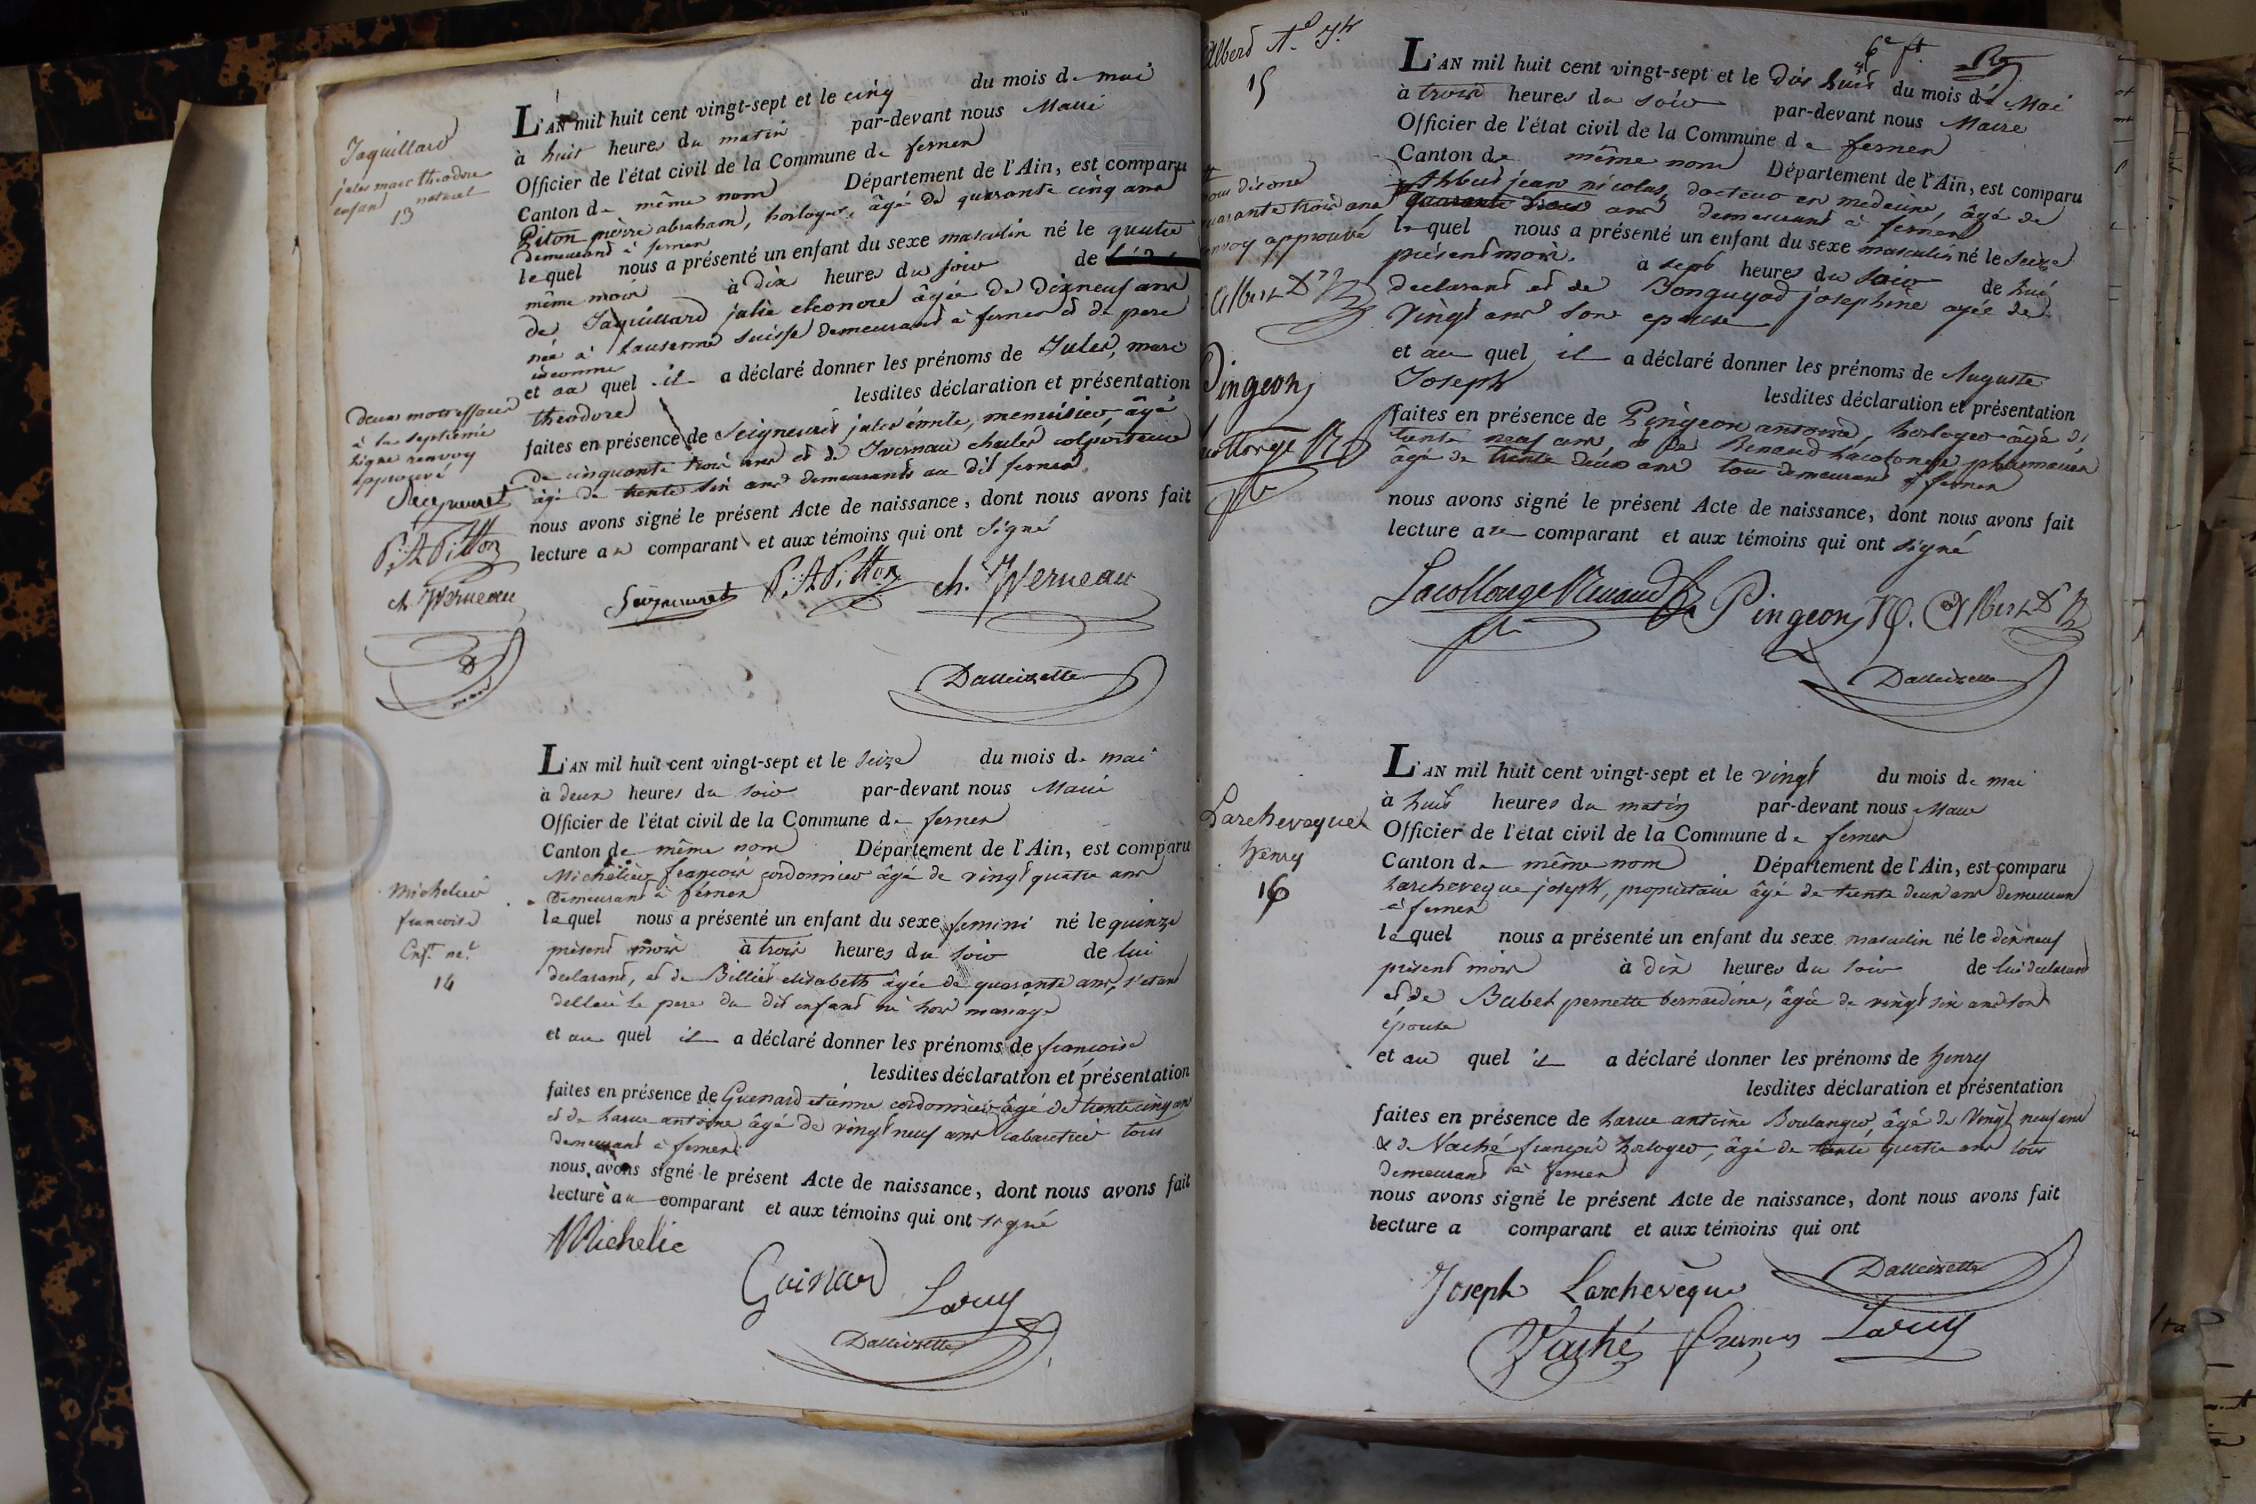 Jaquillard
jules marc theodore
enfant naturel
13
L'AN mil huit cent vingt-sept et le cinq du mois de mai
à huit heures du matin par-devant nous Maire
Officier de l'état civil de la Commune de ferney
Canton de même nom Département de l'Ain, est comparu
Piton pierre abraham, horloger, âgé de quarante cinq ans
demeurant à ferney
lequel nous a présenté un enfant du sexe masculin né le quatre
même mois à dix heures du soir de
de Jaquillard julie eleonore âgée de dixneuf ans
née à Lausanne Suisse demeurant à ferney et de pere
inconnu
et au quel il a déclaré donner les prénoms de Jules, marc
theodore lesdites déclaration et présentation
faites en présence de Seigneuret jules émile, menuisier, âgé
de cinquante trois ans et de Iverneau charles colporteur
âgé de trente six ans demeurants au dit ferney
nous avons signé le présent Acte de naissance, dont nous avons fait
lecture au comparant et aux témoins qui ont signé
Deux mots effacés
à la septième
ligne renvoy
approuvé
Seigneuret
P: A Pitton
ch. Iverneau
Seigneuret P: A Pitton ch. Iverneau
Dalleizette
L'AN mil huit cent vingt-sept et le seize du mois de mai
à deux heures du soir par-devant nous Maire
Officier de l'état civil de la Commune de ferney
Canton de même nom Département de l'Ain, est comparu
Michelier françois cordonnier âgé de vingt quatre ans
demeurant à ferney
lequel nous a présenté un enfant du sexe femini né le quinze
présent mois à trois heures du soir de lui
declarant, et de Billiet elisabeth âgée de quarante ans, s'etant
declaré le pere du dit enfant né hors mariage
et au quel il a déclaré donner les prénoms de françoise
lesdites déclaration et présentation
faites en présence de Guenard etienne cordonnier âgé de trente cinq ans
et de Larue antoine âgé de vingt neuf ans cabaretier tous
demeurant à ferney
nous avons signé le présent Acte de naissance, dont nous avons fait
lecture au comparant et aux témoins qui ont signé
Michelier
francoise
Enft. nel.
14
Michelie
Guinard Laruy
Dalleizette
Albert Ate. Jh
15
L'AN mil huit cent vingt-sept et le Dix huit du mois de Mai
à trois heures du soir par-devant nous Maire
Officier de l'état civil de la Commune de ferney
Canton de même nom Département de l'Ain, est comparu
Albert jean nicolas, docteur en medecine, âgé de
quarante deux ans demeurant à ferney
lequel nous a présenté un enfant du sexe masculin né le seize
présent mois. à sept heures du soir de lui
declarant et de Bonguyod josephine agée de
vingt ans son epouse
et au quel il a déclaré donner les prénoms de Auguste
Joseph lesdites déclaration et présentation
faites en présence de Pingeon antoine, horloger âgé de
trente neuf ans, et de Renaud Lacolonge pharmacien
âgé de trente deux ans tous demeurant à ferney
nous avons signé le présent Acte de naissance, dont nous avons fait
lecture au comparant et aux témoins qui ont signé
nous disons
quarante trois ans
renvoy approuvé
Albert Dr
Pingeon
Lacollonge Renaud Pingeon Albert Dr
Dalleizette
Larcheveque
henry
16
L'AN mil huit cent vingt-sept et le vingt du mois de mai
à huit heures du matin par-devant nous Maire
Officier de l'état civil de la Commune de ferney
Canton de même nom Département de l'Ain, est comparu
Larcheveque joseph, propriétaire âgé de trente deux ans demeurant
à ferney
lequel nous a présenté un enfant du sexe masculin né le dix neuf
présent mois à dix heures du soir de lui declarant
et de Babet pernette bernardine, âgée de vingt six ans son
épouse
et au quel il a déclaré donner les prénoms de henry
lesdites déclaration et présentation
faites en présence de Larue antoine Boulanger, âgé de vingt neuf ans
& de Vaché françois horloger, âgé de trente quatre ans tous
demeurant à ferney
nous avons signé le présent Acte de naissance, dont nous avons fait
lecture a comparant et aux témoins qui ont
Joseph Larchevêque Dalleizette
Vaché Laruy